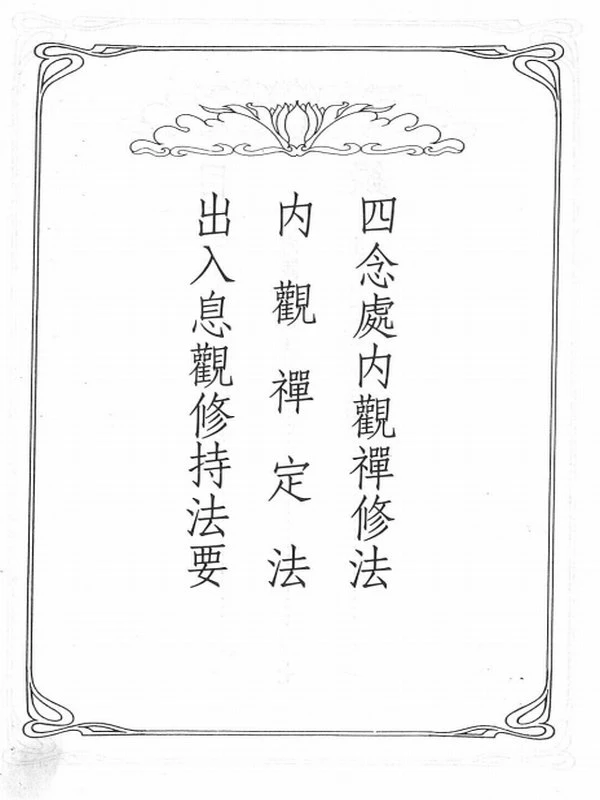 四念處内觀禪修法
内觀禪定法
出入息觀修持法要